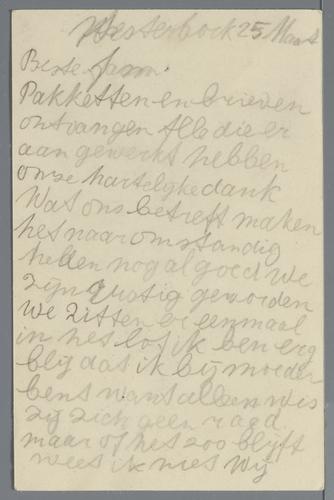 Westerborck 25 Maart
Beste fam.
Pakketten en brieven
ontvangen Alle die er
aan gewerkt hebben
onse hartelyke dank
Wat ons betreft maken
het naar omstandig
heden nog al goed we
zyn rustig geworden
we zitten er eenmaal
in het lot ik ben erg
bly dat ik by moeder
ben want alleen wis
zy zich geen raad
maar of het zoo blyft
weet ik niet Wy